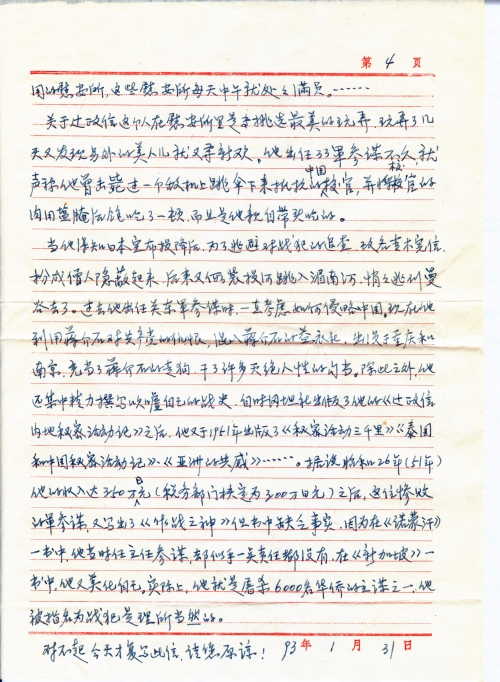 第 4 页
用的慰安所,这些慰安所每天中午就处于满员。……
关于辻政信这个人在慰安所里是专挑选最美的玩弄,玩弄了几
天又发现另外的美人儿就又弄新欢。他出任33军参谋不久,就
声称他曾击毙过一个敌机上跳伞下来抵抗的中国校官,并将校官的
肉用盐腌后饱吃了一顿,而且是他亲自带头吃的。
当他得知日本宣布投降后,为了逃避对战犯的追查,改名青木宪信,
扮成僧人隐蔽起来,后来又伪装投河跳入湄南河,悄々逃到曼
谷去了。过去他出任关东军参谋时,一直考虑如何侵略中国。现在他
利用蒋介石对共产党的仇恨,混入蒋介石的蓝衣社,出没于重庆和
南京,充当了蒋介石的走狗,干了许多灭绝人性的勾当。除此之外,他
还集中精力撰写吹嘘自己的战史,自时内地社出版了他的《辻政信
内地秘密活动记》之后,他又于1951年出版了《秘密活动三千里》《泰国
和中国秘密活动记》、《亚洲的共感》……。据说昭和26年(51年)
他的收入达350万日元(税务部门核定为300万日元)之后,这位惨败
的军参谋,又写出了《作战之神》但书中缺乏事实,因为在《诺蒙汗》
一书中,他当时任主任参谋,却似乎一点责任都没有,在《新加坡》一
书中,他又美化自己,实际上,他就是屠杀6000名华侨的主谋之一,他
被指名为战犯是理所当然的。
对不起今天才复写此信,请您原谅! 93 年 1 月 31 日